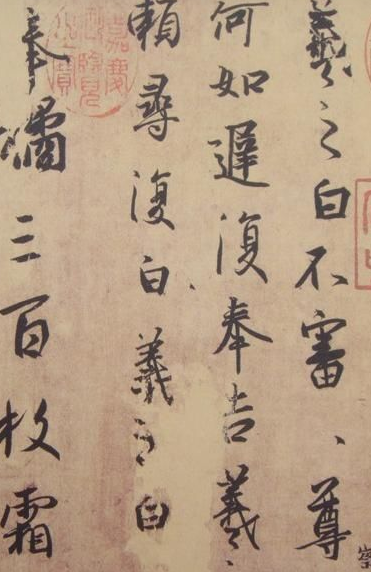 羲之白不審、尊
何如遲復奉告羲、
賴尋復白、羲之白
奉橘三百枚霜
嘉慶御覽之寶